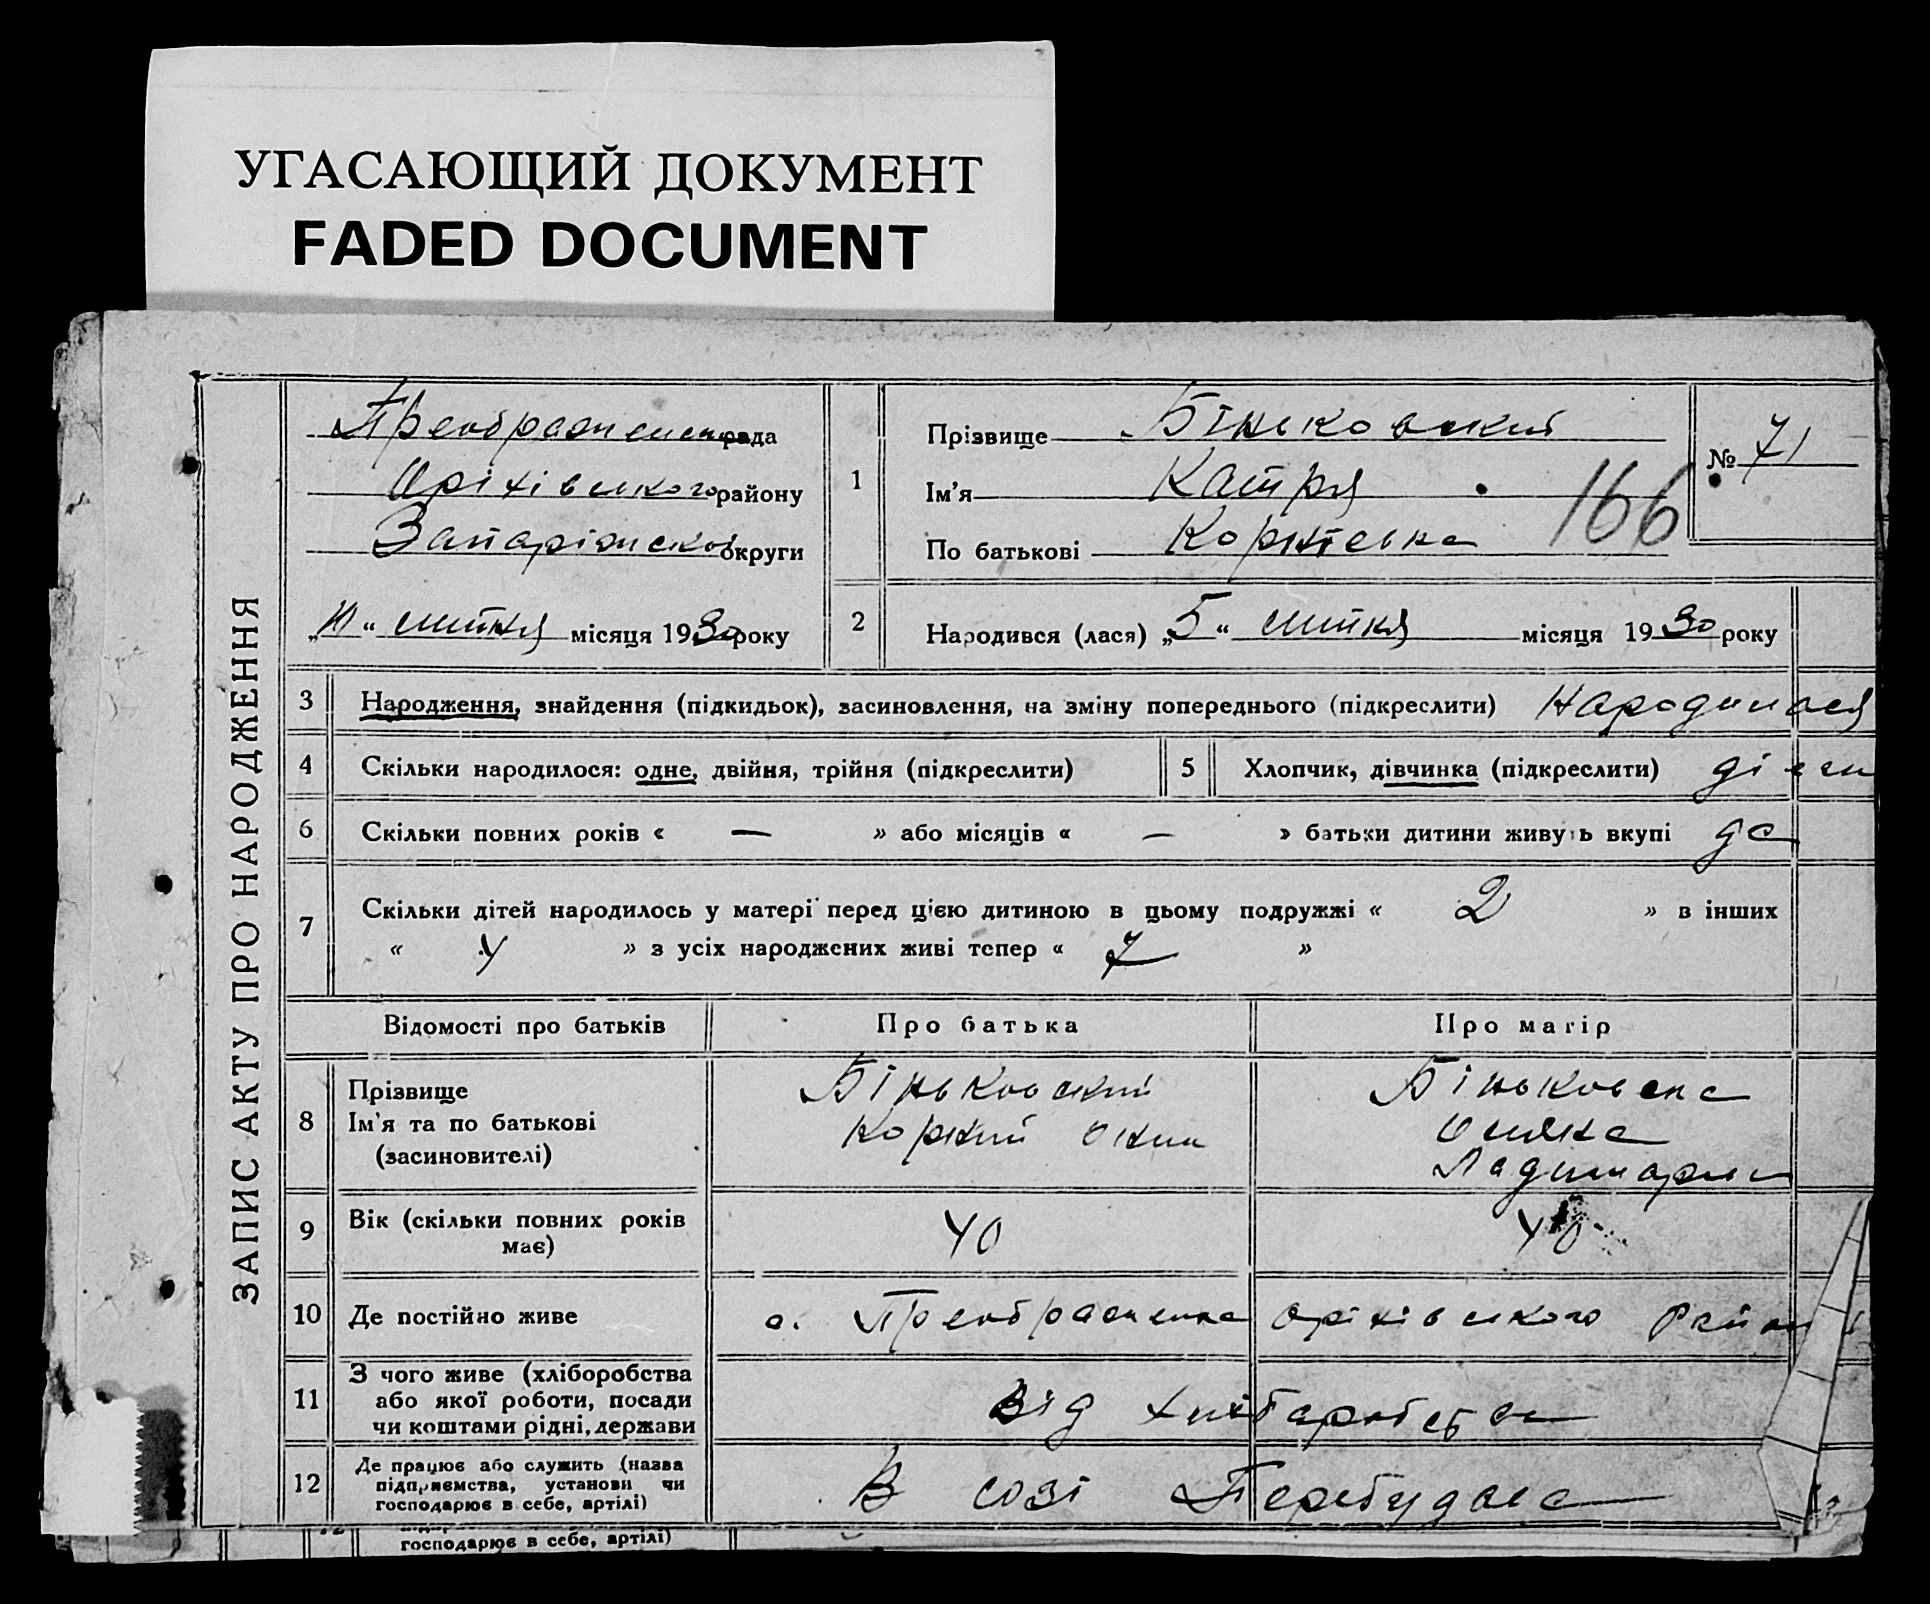 УГАСАЮЩИЙ ДОКУМЕНТ
FADED DOCUMENT
ЗАПИС АКТУ ПРО НАРОДЖЕННЯ
Преображенська рада
Оріхівського району
Запоріжської округи
„10“ липня місяця 1930 року
1
Прізвище Біньковский
Ім’я Катря
По батькові Корніевна
166
№ 71
2
Народився (лася) „5“ липня місяця 1930 року
3 Народження, знайдення (підкидьок), засиновлення, на зміну попереднього (підкреслити) народилася
4 Скільки народилося: одне, двійня, трійня (підкреслити)
5 Хлопчик, дівчинка (підкреслити)
6 Скільки повних років « — » або місяців « — » батьки дитини живуть вкупі да
7 Скільки дітей народилось у матері перед цією дитиною в цьому подружжі « 2 » в інших
« » з усіх народжених живі тепер « 7 »
Відомості про батьків Про батька Про матір
8 Прізвище
Ім’я та по батькові
(засиновителі)
Біньковский
Корній
Біньковска
9 Вік (скільки повних років
має)
40 40
10 Де постійно живе с. Преображенка Оріхівського району
11 З чого живе (хліборобства
або якої роботи, посади
чи коштами рідні, держави
від хліборобства
12 Де працює або служить (назва
підприємства, установи чи
господарює в себе, артілі)
В созі Перебудова
господарює в себе, артілі)